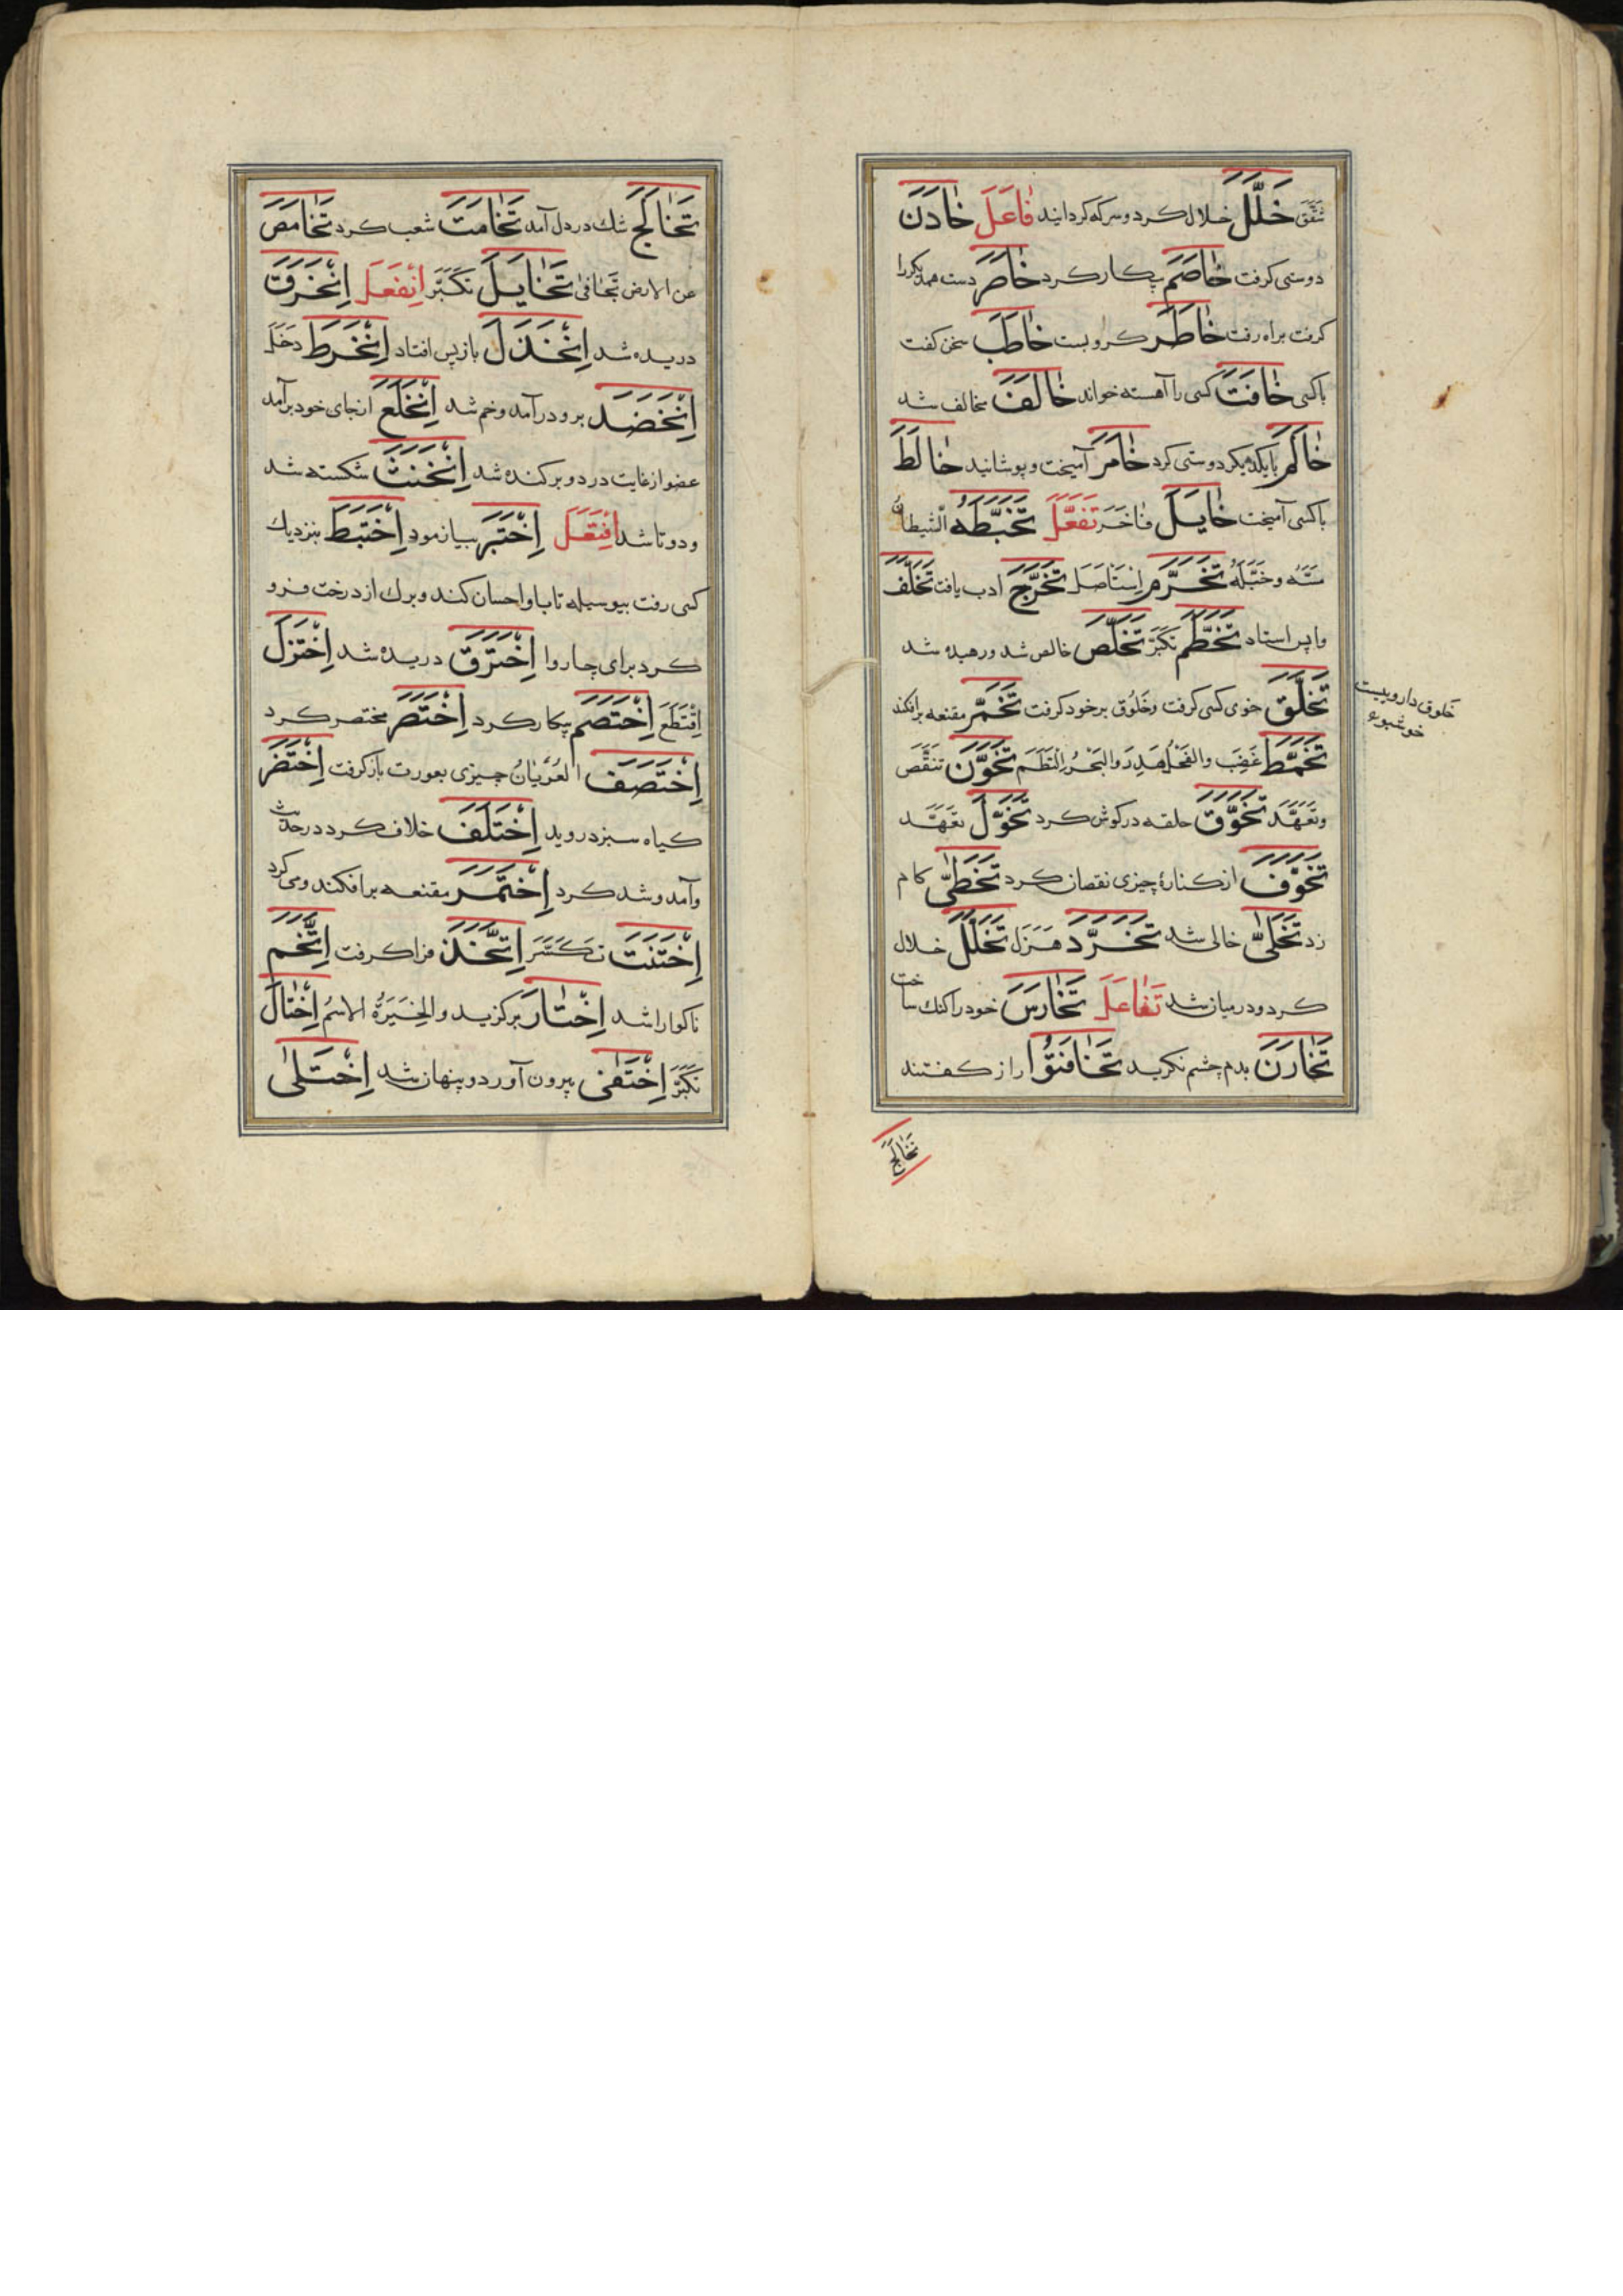 شَقَّقَ خَلَّلَ خلال کرد و سرکه کردانید فَاعَلَ خَادَنَ
دوستی کرفت خَاصَمَ پیکار کرد خَاصَرَ دست همدیکر را
کرفت براه رفت خَاطَرَ کرو بست خَاطَبَ سخن کفت
باکسی خَافَتَ کسی را آهسته خواند خَالَفَ مخالف شد
خَالَمَ بایکدیکر دوستی کرد خَامَرَ آمیخت و پوشانید خَالَطَ
باکسی آمیخت خَایَلَ فَاخَرَ تَفَعَّلَ تَخَبَّطَهُ الشیطانُ
مَسَّهُ و خَبَّلَهُ تَخَرَّمَ اِسْتَاصَلَ تَخَرَّجَ ادب یافت تَخَلَّفَ
واپس استاد تَخَطَّمَ تَکَبَّرَ تَخَلَّصَ خالص شد و رهیده شد
تَخَلَّقَ خوی کسی کرفت وخَلُوق بر خود کرفت تَخَمَّرَ مقنعه برافکند
تَخَمَّطَ غَضِبَ والفَحْلُ هَدَرَ والبَحْرُ اِلْتَطَمَ تَخَوَّنَ تَنَقَّصَ
وتَعَهَّدَ تَخَوَّقَ حلقه در کوش کرد تَخَوَّلَ تَعَهَّدَ
تَخَوَّفَ از کنارۀ چیزی نقصان کرد تَخَطّیٰ کام
زد تَخَلّیٰ خالی شد تَخَرَّدَ هَزَلَ تَخَلَّلَ خلال
کرد و در میان شد تَفَاعَلَ تَخَارَسَ خود را کنک ساخت
تَخَازَنَ بدم چشم نکرید تَخَافَتُوا راز کفتند
تَخَالَجَ
خَلوق داروییست
خوشبوی
تَخَالَجَ شك در دل آمد تَخَامَتَ شعب کرد تَخَامَصَ
عن الارض تَجَافیٰ تَخَایَلَ تَکَبَّرَ اِنْفَعَلَ اِنْخَرَقَ
دریده شد اِنْخَذَلَ بازپس افتاد اِنْخَرَطَ دَخَلَ
اِنْخَضَدَ برو درآمد و خم شد اِنْخَلَعَ ازجای خود برآمد
عضو از غایت درد و برکنده شد اِنْخَنَثَ شکسته شد
و دوتا شد اِفْتَعَلَ اِخْتَبَرَ بیازمود اِخْتَبَطَ بنزدیك
کسی رفت بیوسیله تا باو احسان کند و برك از درخت فرو
کرد برای چاروا اِخْتَرَقَ دریده شد اِخْتَزَلَ
اِقْتَطَعَ اِخْتَصَمَ پیکار کرد اِخْتَصَرَ مختصر کرد
اِخْتَصَفَ العُرْیَانُ چیزی بعورت باز کرفت اِخْتَضَرَ
کیاه سبز دروید اِخْتَلَفَ خلاف کرد در حدیث
و آمد و شد کرد اِخْتَمَرَ مقنعه برافکند و می کرد
اِخْتَنَثَ تَکَسَّرَ اِتَّخَذَ فرا کرفت اِتَّخَمَ
ناکوارا شد اِخْتَارَ برکزید والخِیَرَةُ الاسمُ اِخْتَالَ
تَکَبَّرَ اِخْتَفیٰ بیرون آورد و پنهان شد اِخْتَلیٰ